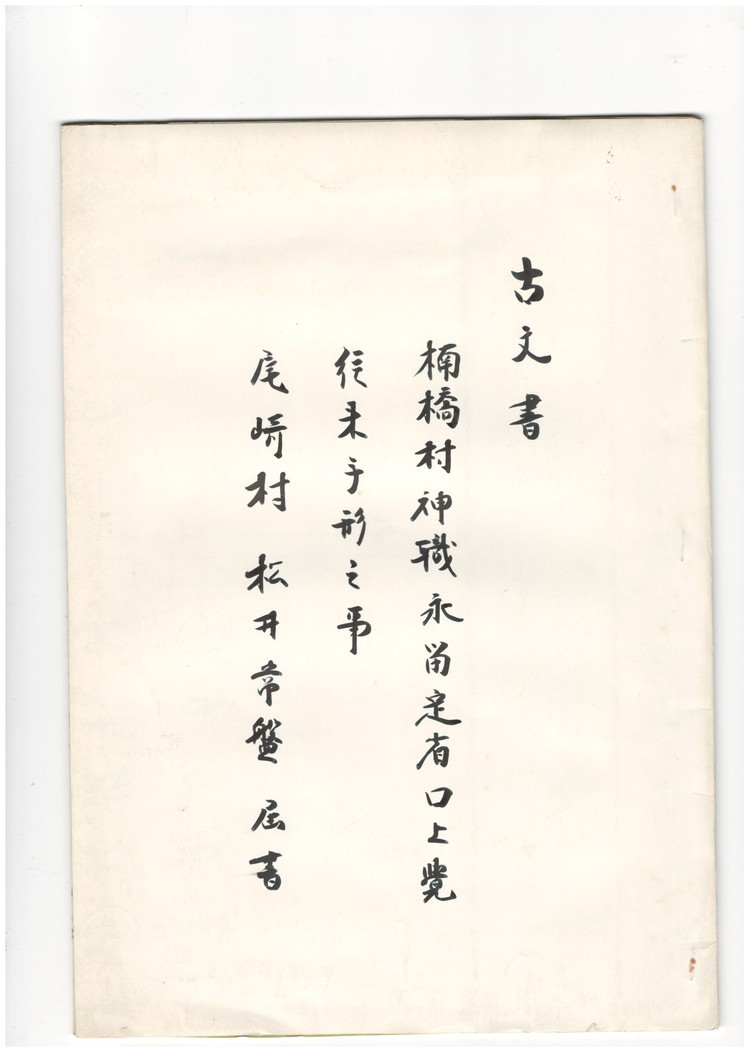 古文書
楠橋村神職永留定省口上覚
往来手形之事
尾崎村 松井常盤 届書